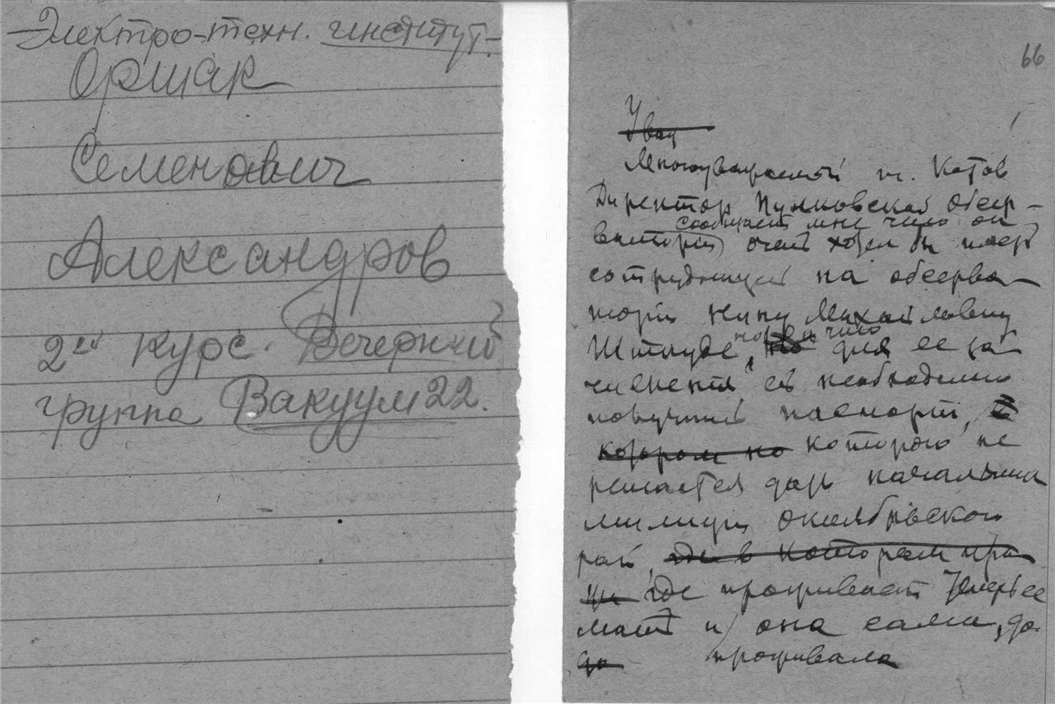 Электро-техн. институт.
Оршак
Семенович
Александров
2ой курс. Вечерний
группа Вакуум 22.
66
Уваж
Многоуважаемый т. Котов
Директор Пулковской обсер-
сообщает мне что он
ватории очень хотел бы иметь
сотрудницей на обсерва-
тории Нину Михайловну
Штауде, но для ее за
числения ей необходимо
получить паспорт,
котором но которого не
решается дать начальник
милиции октябрьского
рай, где в котором про
где проживает теперь ее
мать и она сама, до
до проживала